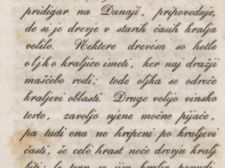 pridigar na Dunaji, pripoveduje,
de si je drevje v starih časih kralja
volilo. Nektere drevesa so hotle
oljko v kraljico imeti, ker naj dražji
mašobo rodi; tode oljka se odreče
kraljevi oblasti. Druge voljo vinsko
terto, zavoljo njene močne pijače,
pa tudi ona ne hrepeni po kraljevi
časti, še celo hrast noče drevju kralj
biti;